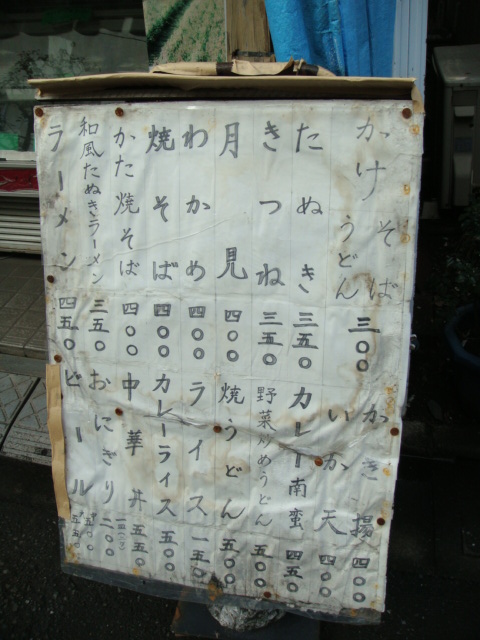 かけ そば うどん 三〇〇
たぬき 三五〇
きつね 三五〇
月見 四〇〇
わかめ 四〇〇
焼そば 四〇〇
かた焼そば 四〇〇
和風たぬきラーメン 三五〇
ラーメン 四五〇
かき揚 四〇〇
いか天 四〇〇
カレー南蛮 四五〇
野菜炒めうどん 五〇〇
焼うどん 五〇〇
ライス 一五〇
カレーライス 五〇〇
中華丼 五五〇
おにぎり 二〇〇
ビール 五〇〇 五五〇